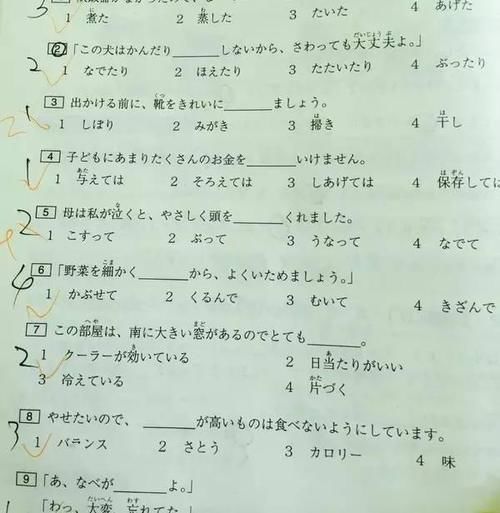 1 煮た 2 蒸した 3 たいた 4 あげた
2 「この犬はかんだり______しないから、さわっても大丈夫よ。」
1 なでたり 2 ほえたり 3 たたいたり 4 ぶったり
3 出かける前に、靴をきれいに______ましょう。
1 しぼり 2 みがき 3 掃き 4 干し
4 子どもにあまりたくさんのお金を______いけません。
1 与えては 2 そろえては 3 しあげては 4 保存しては
5 母は私が泣くと、やさしく頭を______くれました。
1 こすって 2 ぶって 3 うなって 4 なでて
6 「野菜を細かく______から、よくいためましょう。」
1 かぶせて 2 くるんで 3 むいて 4 きざんで
7 この部屋は、南に大きい窓があるのでとても______。
1 クーラーが効いている 2 日当たりがいい
3 冷えている 4 片づく
8 やせたいので、______が高いものは食べないようにしています。
1 バランス 2 さとう 3 カロリー 4 味
9 「あ、なべが______よ。」
「わっ、大変、忘れてた。